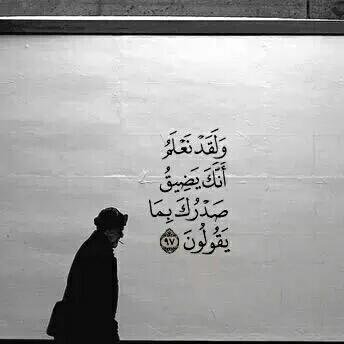 وَلَقَدْ نَعْلَمُ
أَنَّكَ يَضِيقُ
صَدْرُكَ بِمَا
يَقُولُونَ ٩٧